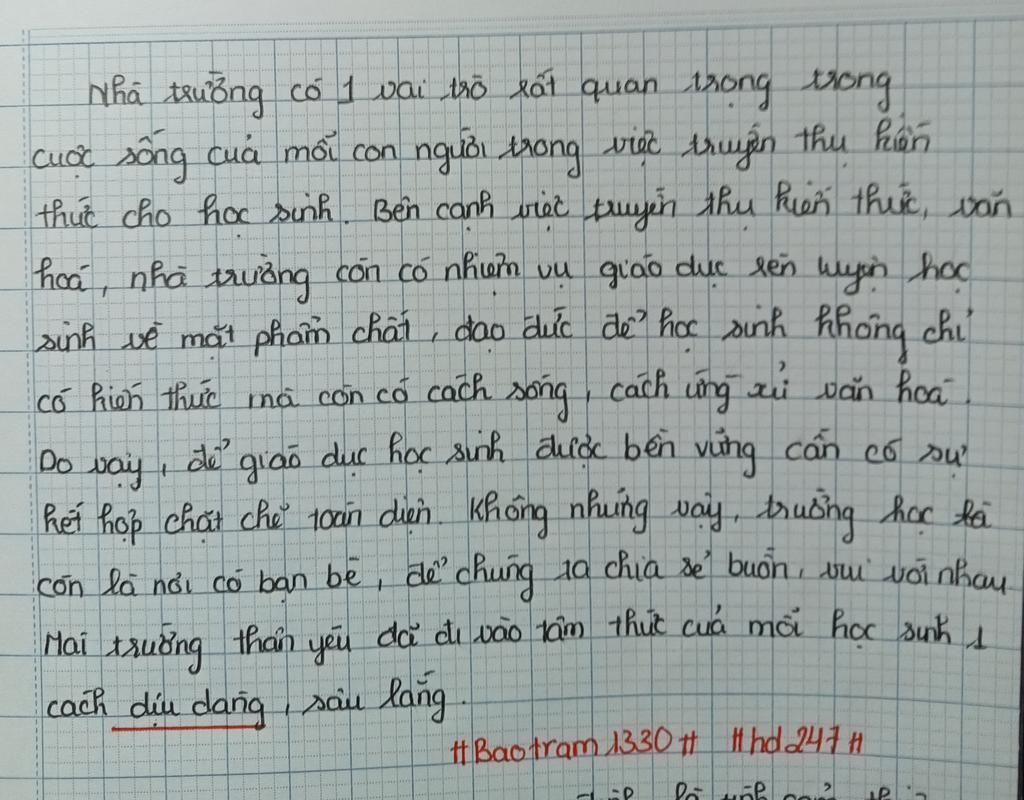 Nhà trường có 1 vai trò rất quan trọng trong
cuộc sống của mỗi con người trong việc truyền thụ kiến
thức cho học sinh. Bên cạnh việc truyền thụ kiến thức, văn
hoá, nhà trường còn có nhiệm vụ giáo dục rèn luyện học
sinh về mặt phẩm chất, đạo đức để học sinh không chỉ
có kiến thức mà còn có cách sống, cách ứng xử văn hoá.
Do vậy, để giáo dục học sinh được bền vững cần có sự
kết hợp chặt chẽ toàn diện. Không những vậy, trường học là
còn là nơi có bạn bè, để chúng ta chia sẻ buồn, vui với nhau
Mái trường thân yêu đã đi vào tâm thức của mỗi học sinh 1
cách dịu dàng, sâu lắng.
#Baotram1330# #hd247#